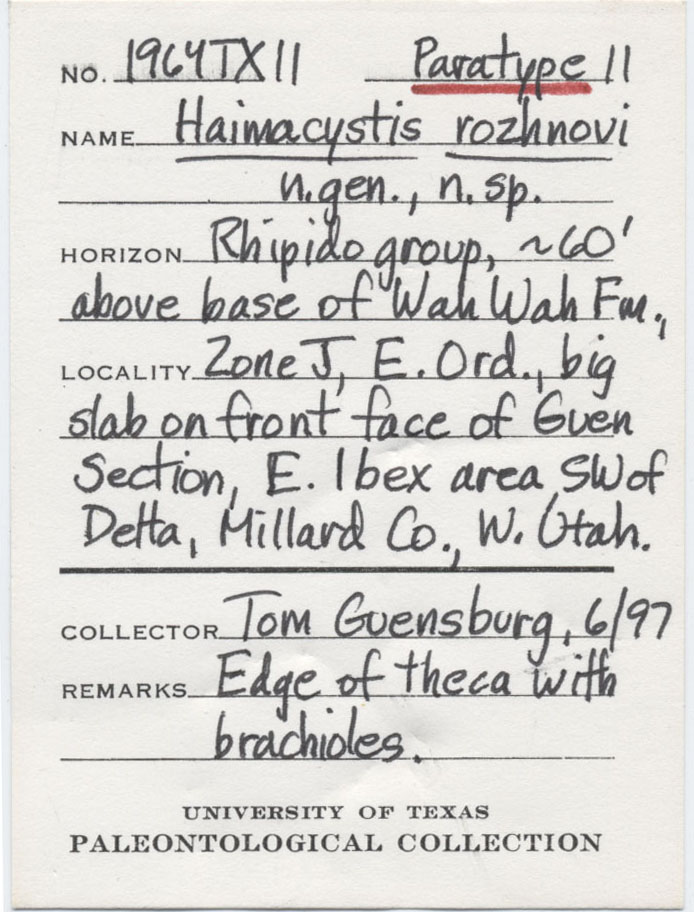 NO. 1964TX11 Paratype 11
NAME Haimacystis rozhnovi
n.gen., n.sp.
HORIZON Rhipido group, ~60'
above base of Wah Wah Fm.,
LOCALITY Zone J, E. Ord., big
slab on front face of Guen
Section, E. Ibex area SW of
Delta, Millard Co., W. Utah.
COLLECTOR Tom Guensburg, 6/97
REMARKS Edge of theca with
brachioles.
UNIVERSITY OF TEXAS
PALEONTOLOGICAL COLLECTION